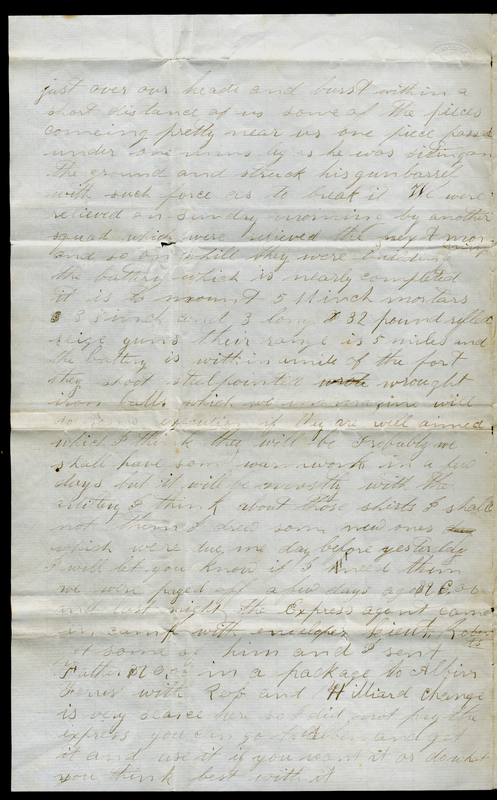 just over our heads and burst within a
short distance of us some of the pieces
comeing pretty near us one piece passed
under one mans leg as he was siting on
the ground and struck his gun barrel
with such force as to break it We were
relieved on Sunday morning by another
squad which were relieved the next mor-
and so on till they were
the battery which is nearly completed
it is to mount 5 11 inch mortars
3 8 inch and 3 long 32 pound rifled
seige guns their range is 5 miles and
the battery is within a mile of the fort
they shoot steel pointed wrought
iron balls which we imagine will
do some execution if they are well aimed
which I think they will be Probably we
shall have som warm work in a few
days but it will be mostly with the
artilery I think about those shirts I shall
not them I drew some new ones
which were due me day before yesterday
I will let you know if I need them
we were payed off a few days ago
and last night the Express agent came
in camp with envelopes
got some of him and I sent
Father in a package to
Ferris with Rop and Hilliard change
is very scarce here so I did not pay the
express you can go to and get
it and use it if you want it or do what
you think best with it